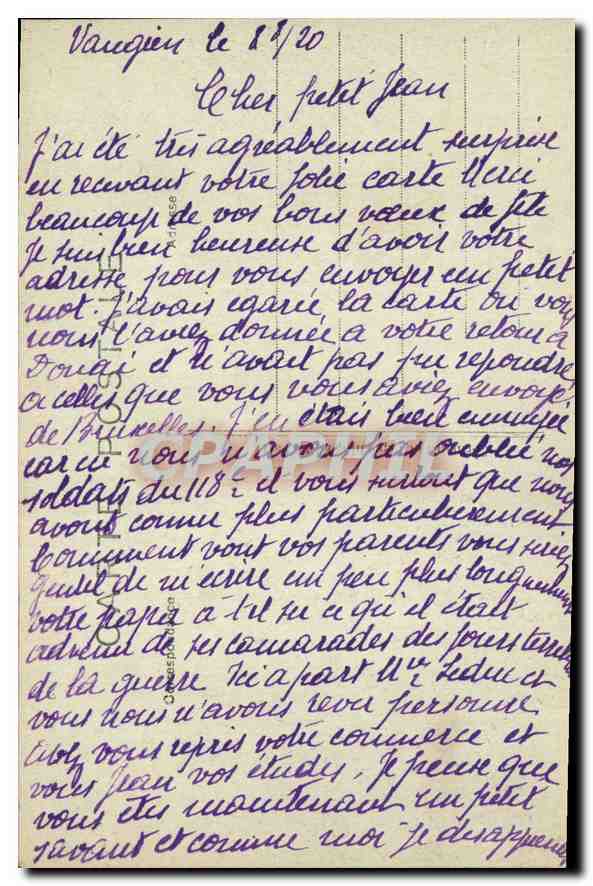 le 8 /20
Cher petit Jean
J'ai été très agréablement surprise
en recevant votre jolie carte Merci
beaucoup de vos bons vœux de fête
Je suis bien heureuse d'avoir votre
adresse pour vous envoyer un petit
mot. J'avais égaré la carte où vous
nous l'aviez donnée à votre retour à
Douai et n'avait pas pu répondre
à celles que vous vous aviez envoyé
de Bruxelles. J'en étais bien ennuyée
car nous n'avons pas oublié nos
soldats du 118e et vous surtout que nous
avons connu plus particulièrement
Comment vont vos parents vous seriez
gentil de m'écrire un peu plus longuement
votre papa a-t-il su ce qu'il était
advenu de ses camarades des jours terribles
de la guerre Ici à part Mr Leduc et
vous nous n'avons revu personne
Avez vous repris votre commerce et
vous Jean vos études. Je pense que
vous êtes maintenant un petit
savant et comme moi je désapprends
CARTE POSTALE
Correspondance
Adresse
CPAPHIL